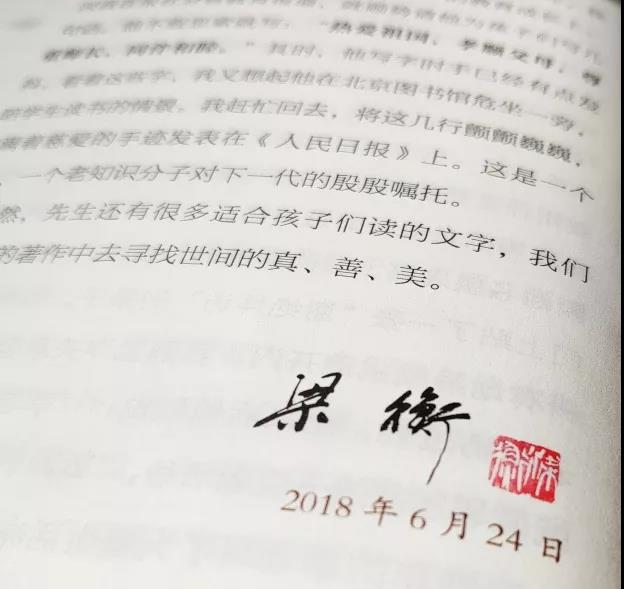 热爱祖国、孝顺父母、尊
重师长、同伴和睦。”其时，他写字时手已经有点发
抖，看着这些字，我又想起他在北京图书馆危坐一旁，
陪学生读书的情景。我赶忙回去，将这几行颤颤巍巍，
满着慈爱的手迹发表在《人民日报》上。这是一个
一个老知识分子对下一代的殷殷嘱托。
然，先生还有很多适合孩子们读的文字，我们
的著作中去寻找世间的真、善、美。
梁衡
2018年6月24日